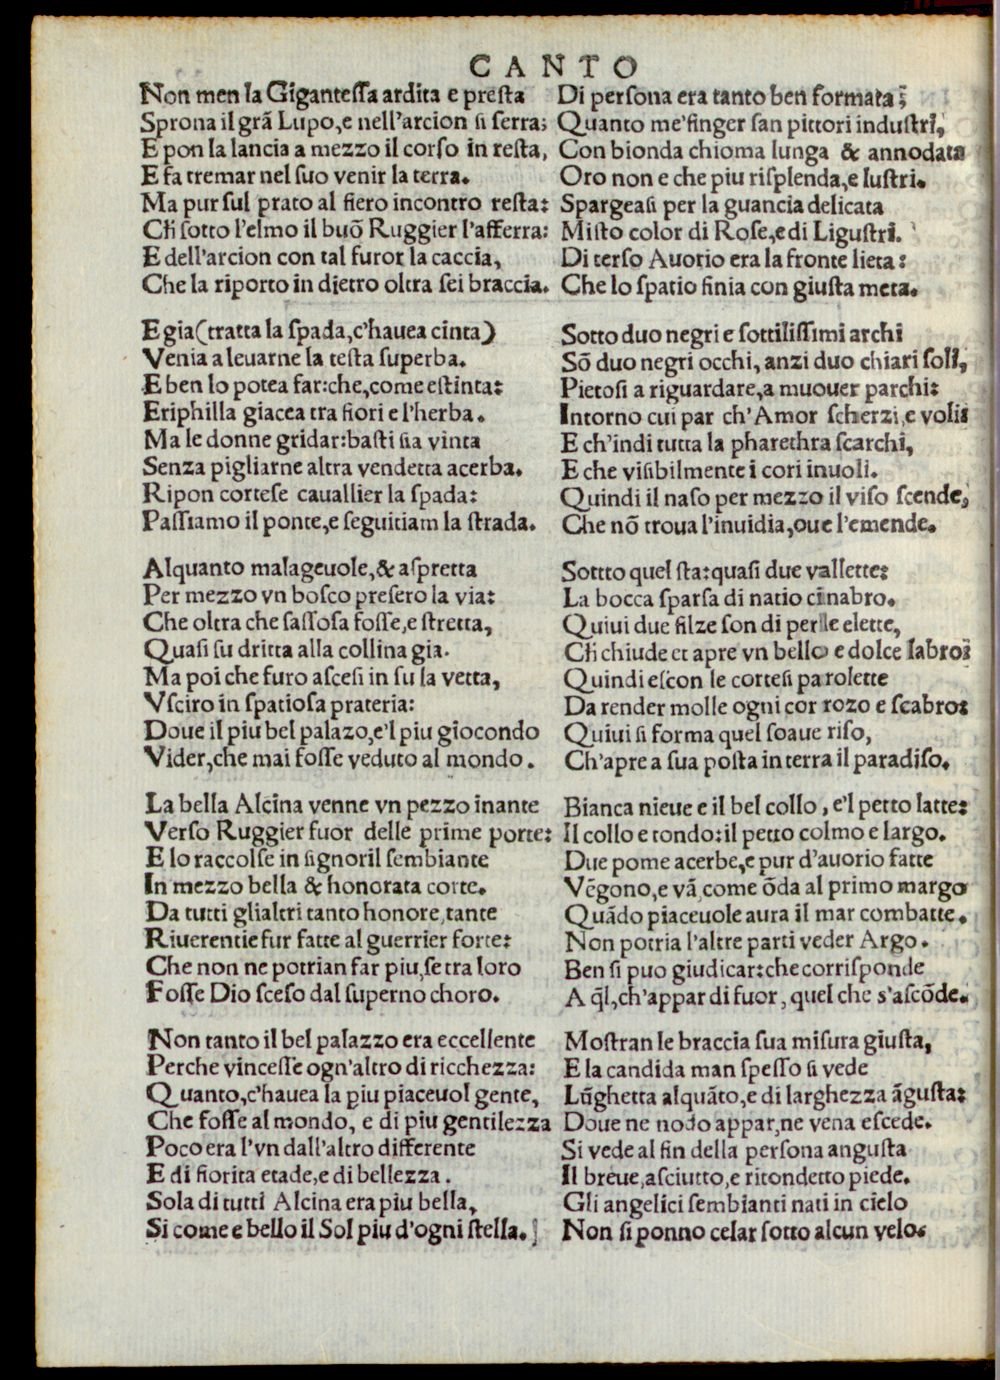 CANTO
Non men la Giganteſſa ardita e preſta
Sprona il grã Lupo,e nell'arcion ſi ſerra;
E pon la lancia a mezzo il corſo in reſta,
E fa tremar nel ſuo venir la terra.
Ma pur ſul prato al fiero incontro reſta:
Ch̃ ſotto l'elmo il buõ Ruggier l'afferra:
E dell'arcion con tal furor la caccia,
Che la riporto in dietro oltra ſei braccia.
E gia (tratta la ſpada,c'hauea cinta)
Venia a leuarne la teſta ſuperba.
E ben lo potea far:che,come eſtinta:
Eriphilla giacea tra fiori e l'herba.
Ma le donne gridar:baſti ſia vinta
Senza pigliarne altra vendetta acerba.
Ripon corteſe cauallier la ſpada:
Paſſiamo il ponte,e ſeguitiam la ſtrada.
Alquanto malageuole,& aſpretta
Per mezzo vn boſco preſero la via:
Che oltra che ſaſſoſa foſſe,e ſtretta,
Quaſi ſu dritta alla collina gia.
Ma poi che furo aſceſi in ſu la vetta,
Vſciro in ſpatioſa prateria:
Doue il piu bel palazo,e'l piu giocondo
Vider,che mai foſſe veduto al mondo.
La bella Alcina venne vn pezzo inante
Verſo Ruggier fuor delle prime porte:
E lo raccolſe in ſignoril ſembiante
In mezzo bella & honorata corte.
Da tutti glialtri tanto honore,tante
Riuerentie fur fatte al guerrier forte:
Che non ne potrian far piu,ſe tra loro
Foſſe Dio ſceſo dal ſuperno choro.
Non tanto il bel palazzo era eccellente
Perche vinceſſe ogn'altro di ricchezza:
Quanto,c'hauea la piu piaceuol gente,
Che foſſe al mondo, e di piu gentilezza
Poco era l'vn dall'altro differente
E di fiorita etade,e di bellezza.
Sola di tutti Alcina era piu bella,
Si come e bello il Sol piu d'ogni ſtella.
Di perſona era tanto ben formata;
Quanto me'finger ſan pittori induſtri,
Con bionda chioma lunga & annodata
Oro non e che piu riſplenda,e luſtri.
Spargeaſi per la guancia delicata
Miſto color di Roſe,e di Liguſtri.
Di terſo Auorio era la fronte lieta:
Che lo ſpatio finia con giuſta meta.
Sotto duo negri e ſottiliſſimi archi
Sõ duo negri occhi, anzi duo chiari ſoli,
Pietoſi a riguardare,a muouer parchi:
Intorno cui par ch'Amor ſcherzi,e voli:
E ch'indi tutta la pharethra ſcarchi,
E che viſibilmente i cori inuoli.
Quindi il naſo per mezzo il viſo ſcende,
Che nõ troua l'inuidia,oue l'emende.
Sottto quel ſta:quaſi due vallette:
La bocca ſparſa di natio cinabro.
Quiui due filze ſon di perle elette,
Ch̃ chiude et apre vn bello e dolce labro:
Quindi eſcon le corteſi parolette
Da render molle ogni cor rozo e ſcabro:
Quiui ſi forma quel ſoaue riſo,
Ch'apre a ſua poſta in terra il paradiſo.
Bianca nieue e il bel collo, e'l petto latte:
Il collo e tondo:il petto colmo e largo.
Due pome acerbe,e pur d'auorio fatte
Vẽgono,e vã,come õda al primo margo
Quãdo piaceuole aura il mar combatte.
Non potria l'altre parti veder Argo.
Ben ſi puo giudicar:che corriſponde
A ql̃,ch'appar di fuor, quel che s'aſcõde.
Moſtran le braccia ſua miſura giuſta,
E la candida man ſpeſſo ſi vede
Lũghetta alquãto,e di larghezza ãguſta:
Doue ne nodo appar,ne vena eſcede.
Si vede al fin della perſona anguſta
Il breue,aſciutto,e ritondetto piede.
Gli angelici ſembianti nati in cielo
Non ſi ponno celar ſotto alcun velo.